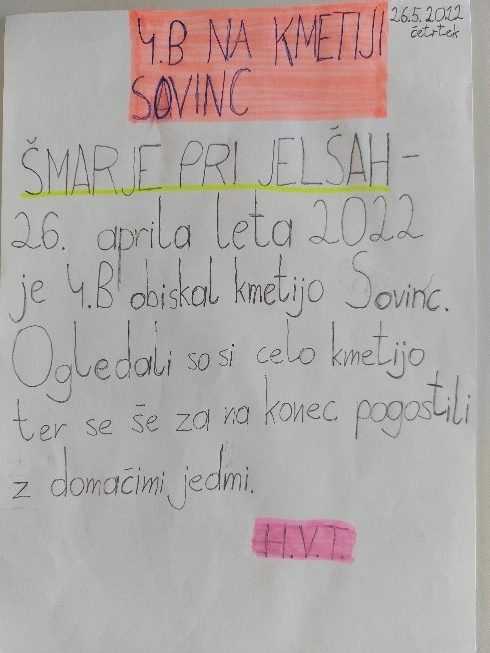 26.5.2022
četrtek
4.B NA KMETIJI
SOVINC
ŠMARJE PRI JELŠAH -
26. aprila leta 2022
je 4.B obiskal kmetijo Sovinc.
Ogledali so si celo kmetijo
ter se še za na konec pogostili
z domačimi jedmi.
H.V.T.